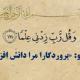 وَقُل رَّبِّ زِدْنِي عِلْمًا
و بگو: «پروردگارا مرا دانش افز